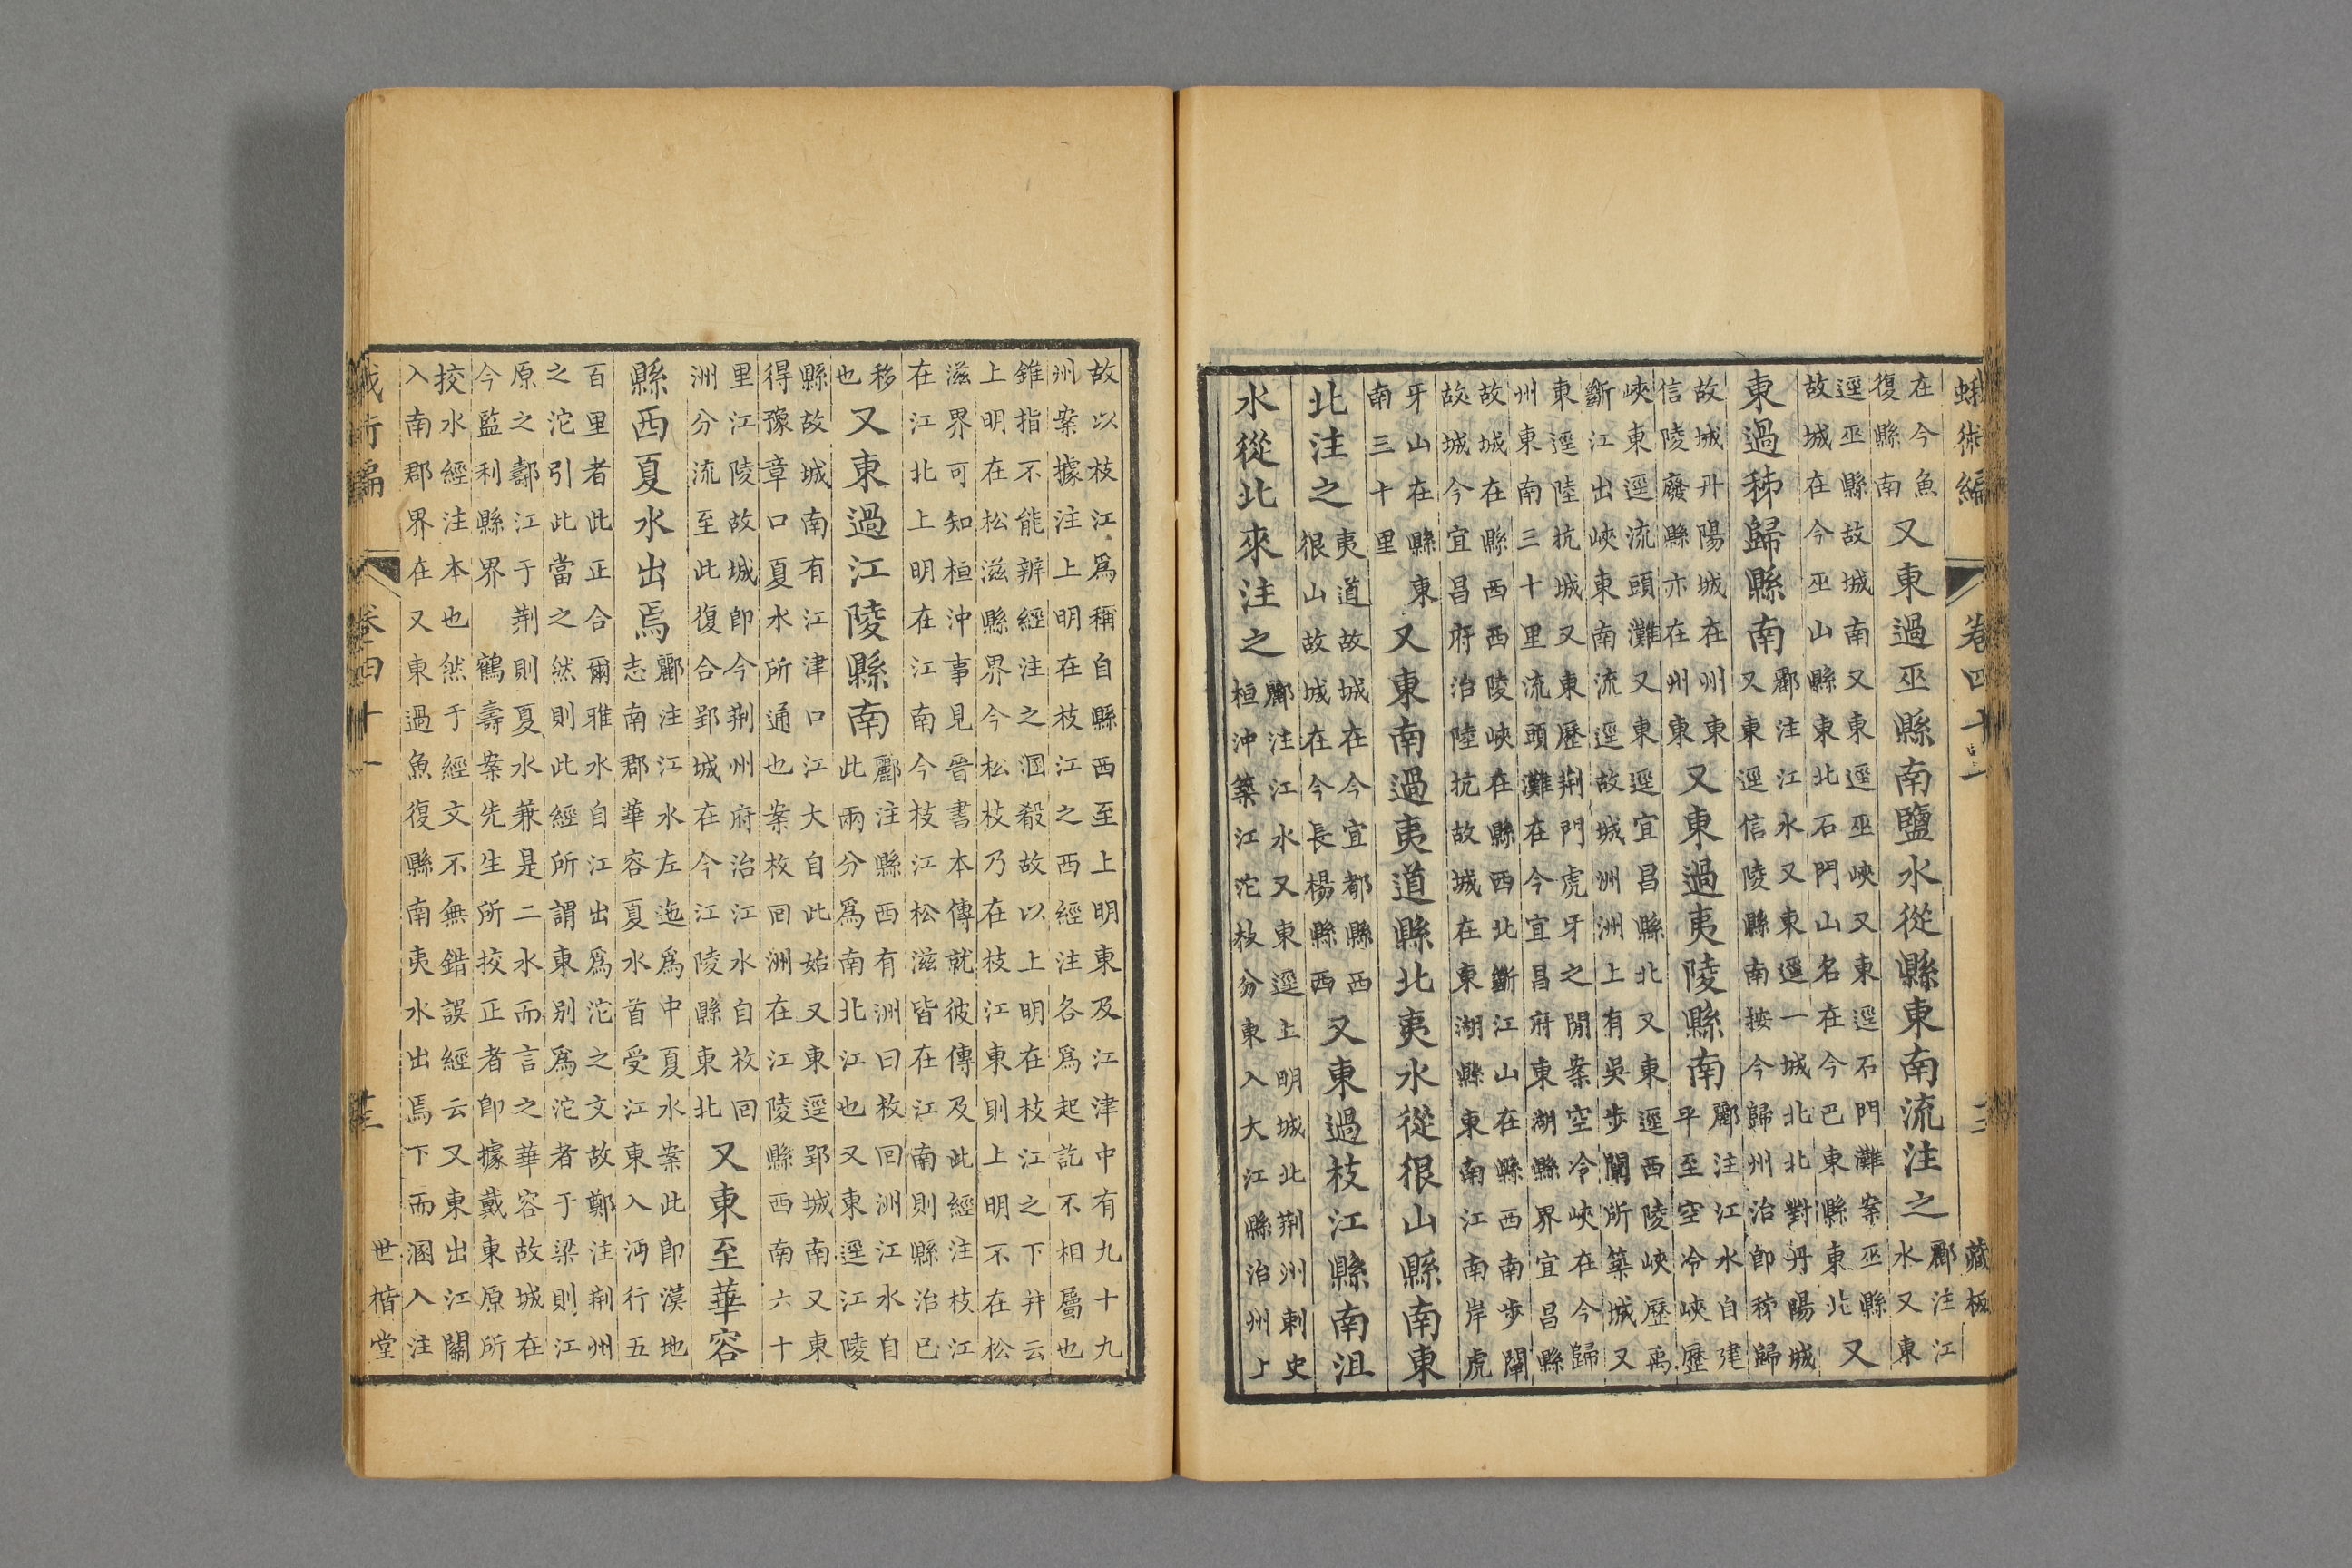 蛾術編 卷四十一 三 藏板
在今魚
復縣南
又東過巫縣南鹽水從縣東南流注之
酈注江
水又東
逕巫縣故城南又東逕巫峽又東逕石門灘案巫縣
故城在今巫山縣東北石門山名在今巴東縣東北
又
東過秭歸縣南
酈注江水又東逕一城北北對丹陽城
又東逕信陵縣南按今歸州治即秭歸
故城丹陽城在州東
信陵廢縣亦在州東
又東過夷陵縣南
酈注江水自建
平至空冷峽歷
峽東逕流頭灘又東逕宜昌縣北又東逕西陵峽歷禹
斷江出峽東南流逕故城洲洲上有吳步闡所築城又
東逕陸抗城又東歷荆門虎牙之閒案空冷峽在今歸
州東南三十里流頭灘在今宜昌府東湖縣界宜昌縣
故城在縣西西陵峽在縣西北斷江山在縣西南步闡
故城今宜昌府治陸抗故城在東湖縣東南江南岸虎
牙山在縣東
南三十里
又東南過夷道縣北夷水從很山縣南東
北注之
夷道故城在今宜都縣西
很山故城在今長楊縣西
又東過枝江縣南沮
水從北來注之
酈注江水又東逕上明城北荆州刺史
桓沖築江沱枝分東入大江縣治州上
故以枝江爲稱自縣西至上明東及江津中有九十九
州案據注上明在枝江之西經注各爲起訖不相屬也
錐指不能辨經注之溷殽故以上明在枝江之下幷云
上明在松滋縣界今松枝乃在枝江東則上明不在松
滋界可知桓沖事見晉書本傳就彼傳及此經注枝江
在江北上明在江南今枝江松滋皆在江南則縣治已
移
也
又東過江陵縣南
酈注縣西有洲曰枚回洲江水自
此兩分爲南北江也又東逕江陵
縣故城南有江津口江大自此始又東逕郢城南又東
得豫章口夏水所通也案枚回洲在江陵縣西南六十
里江陵故城即今荆州府治江水自枚回
洲分流至此復合郢城在今江陵縣東北
又東至華容
縣西夏水出焉
酈注江水左迤爲中夏水案此即漢地
志南郡華容夏水首受江東入沔行五
百里者此正合爾雅水自江出爲沱之文故鄭注荆州
之沱引此當之然則此經所謂東别爲沱者于梁則江
原之䣝江于荆則夏水兼是二水而言之華容故城在
今監利縣界 鶴壽案先生所挍正者即據戴東原所
挍水經注本也然于經文不無錯誤經云又東出江關
入南郡界在又東過魚復縣南夷水出焉下而溷入注
術編 卷四十一 世楷堂